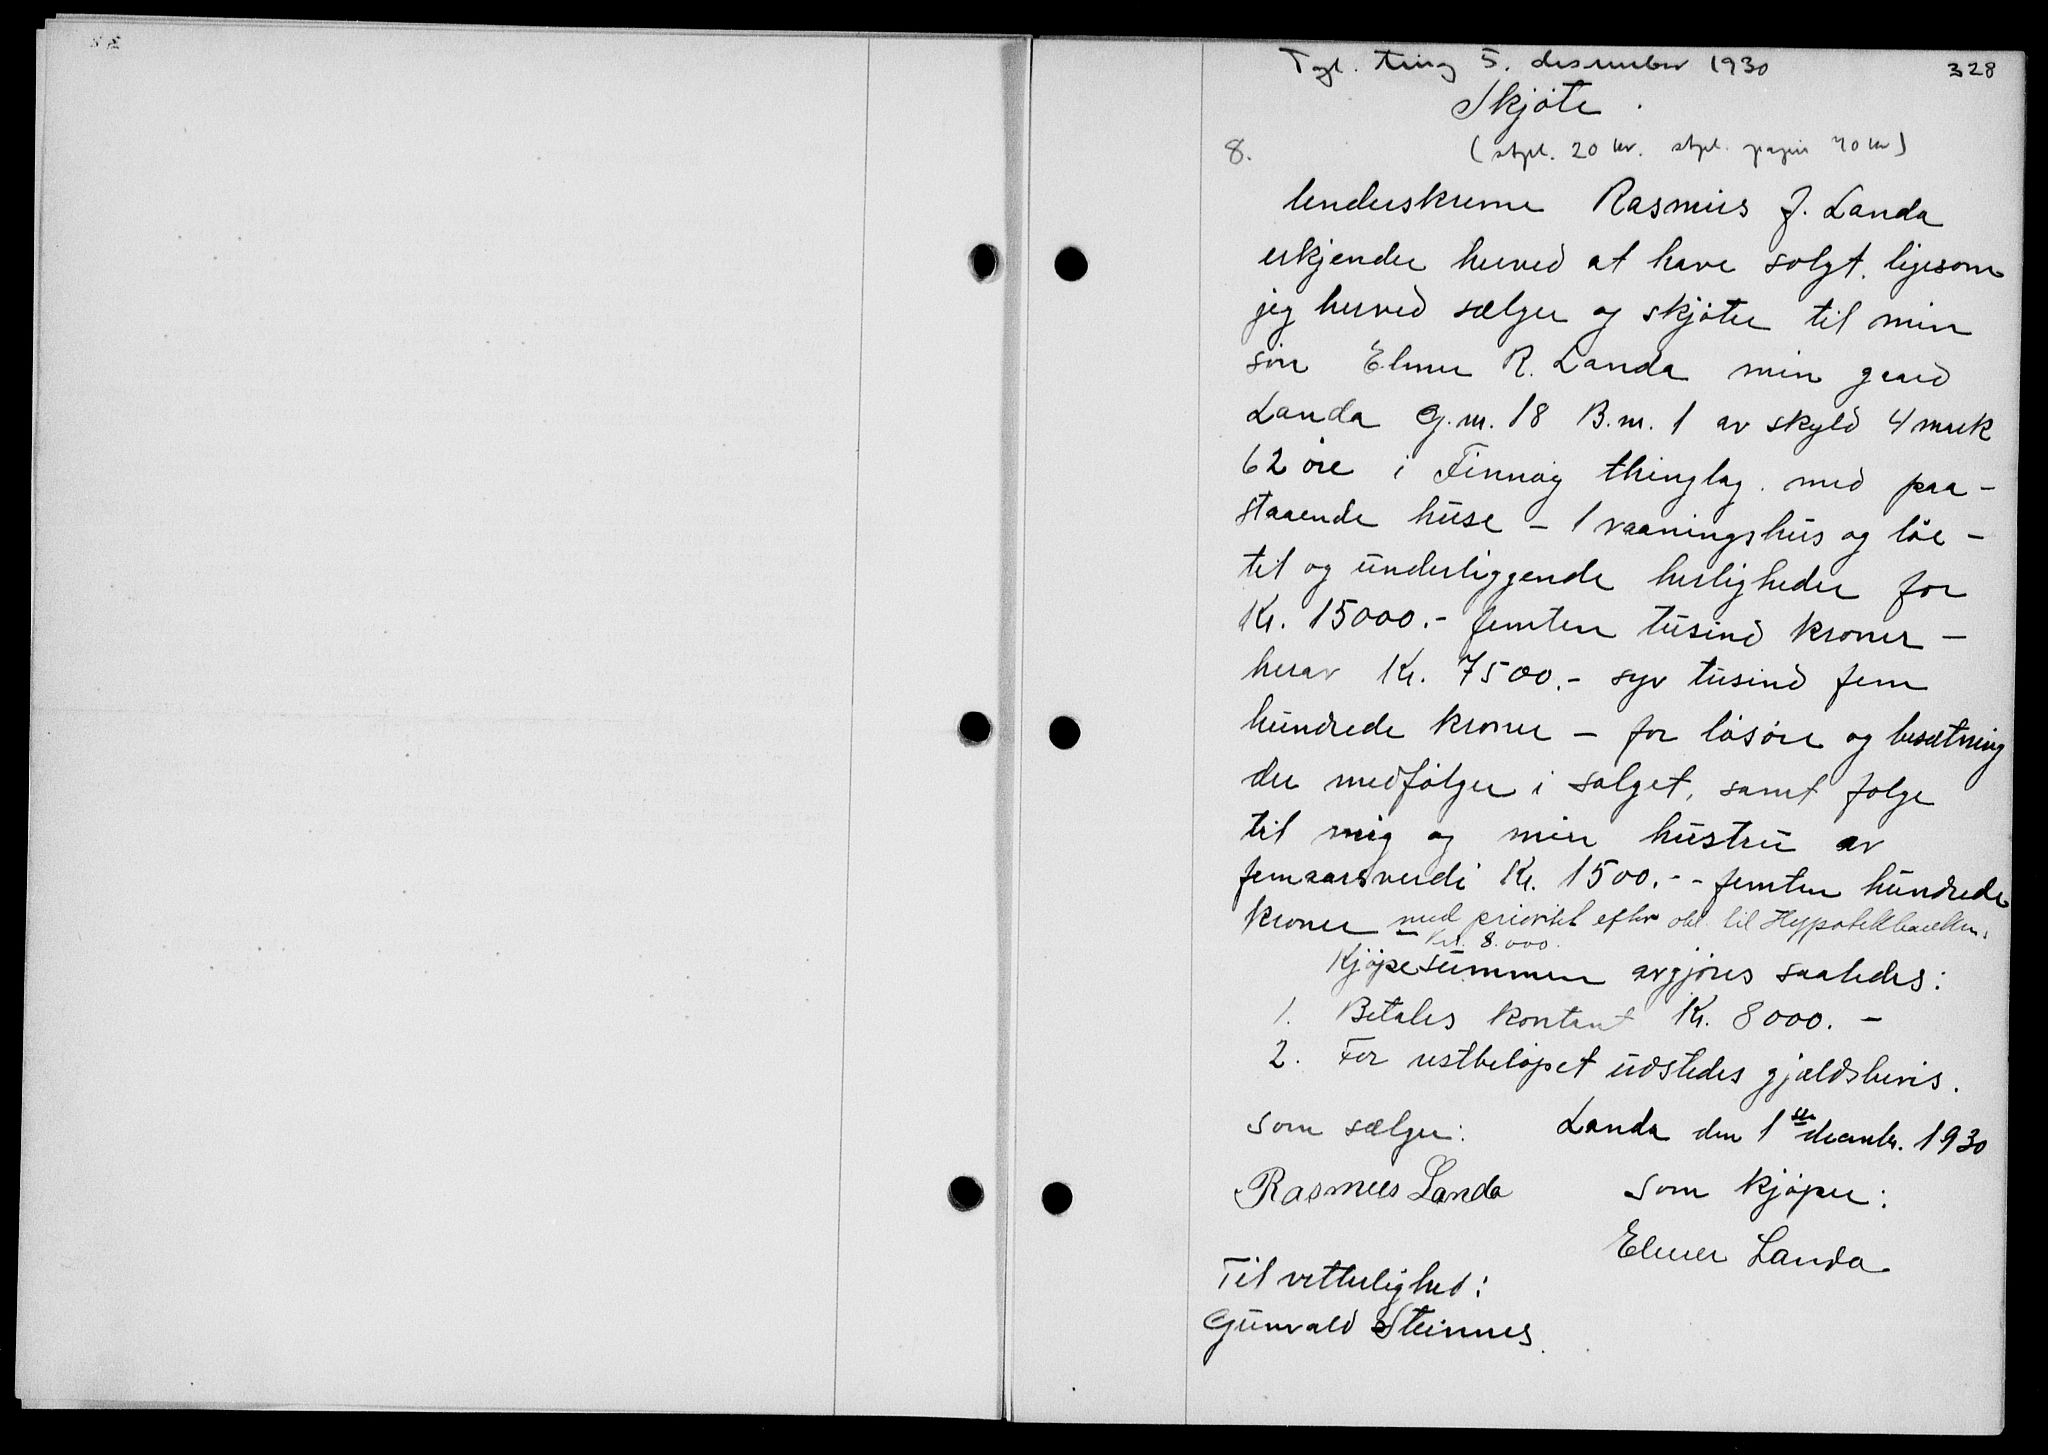 Tgl. ting 5. desember 1930
328
Skjøte.
8.
(stpl. 20 kr. stpl. papir 40 kr)
Underskrevne Rasmus J. Landa
erkjender herved at have solgt, ligesom
jeg herved sælger og skjøter til min
søn Elmer R. Landa min gaard
Landa G.nr. 18 B.nr. 1 av skyld 4 mark
62 øre i Finnøy thinglag med paa-
staaende huse - 1 vaaningshus og løe -
til og underliggende herligheder for
Kr. 15000.- femten tusind kroner -
herav Kr. 7500.- syv tusind fem
hundrede kroner - for løsøre og besætning
der medfølger i salget, samt følge
til mig og min hustru av
femaarsverdi Kr. 1500.-- femten hundrede
kroner med prioritet efter obl. til Hypotekbanken,
kr. 8.000.
Kjøpesummen avgjøres saaledes:
1. Betales kontant Kr. 8000.-
2. For restbeløpet udstedes gjældsbevis.
Som sælger: Landa den 1ste decembr. 1930
Rasmus Landa som kjøper:
Elmer Landa
Til vitterlighed:
Gunvald Steinnes.